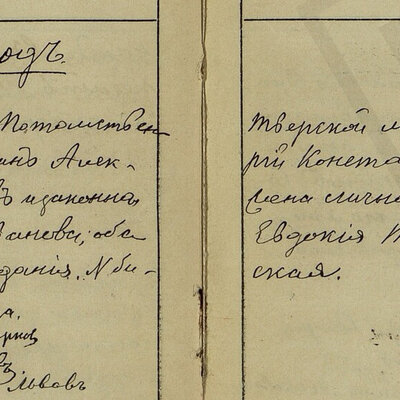 одъ.
Потомствен-
инъ Алек-
въ и законная
ванова; оба
данія. N би-
а.
Львовъ
Тверской м
рій Конста
жена лична
Евдокія
ская.